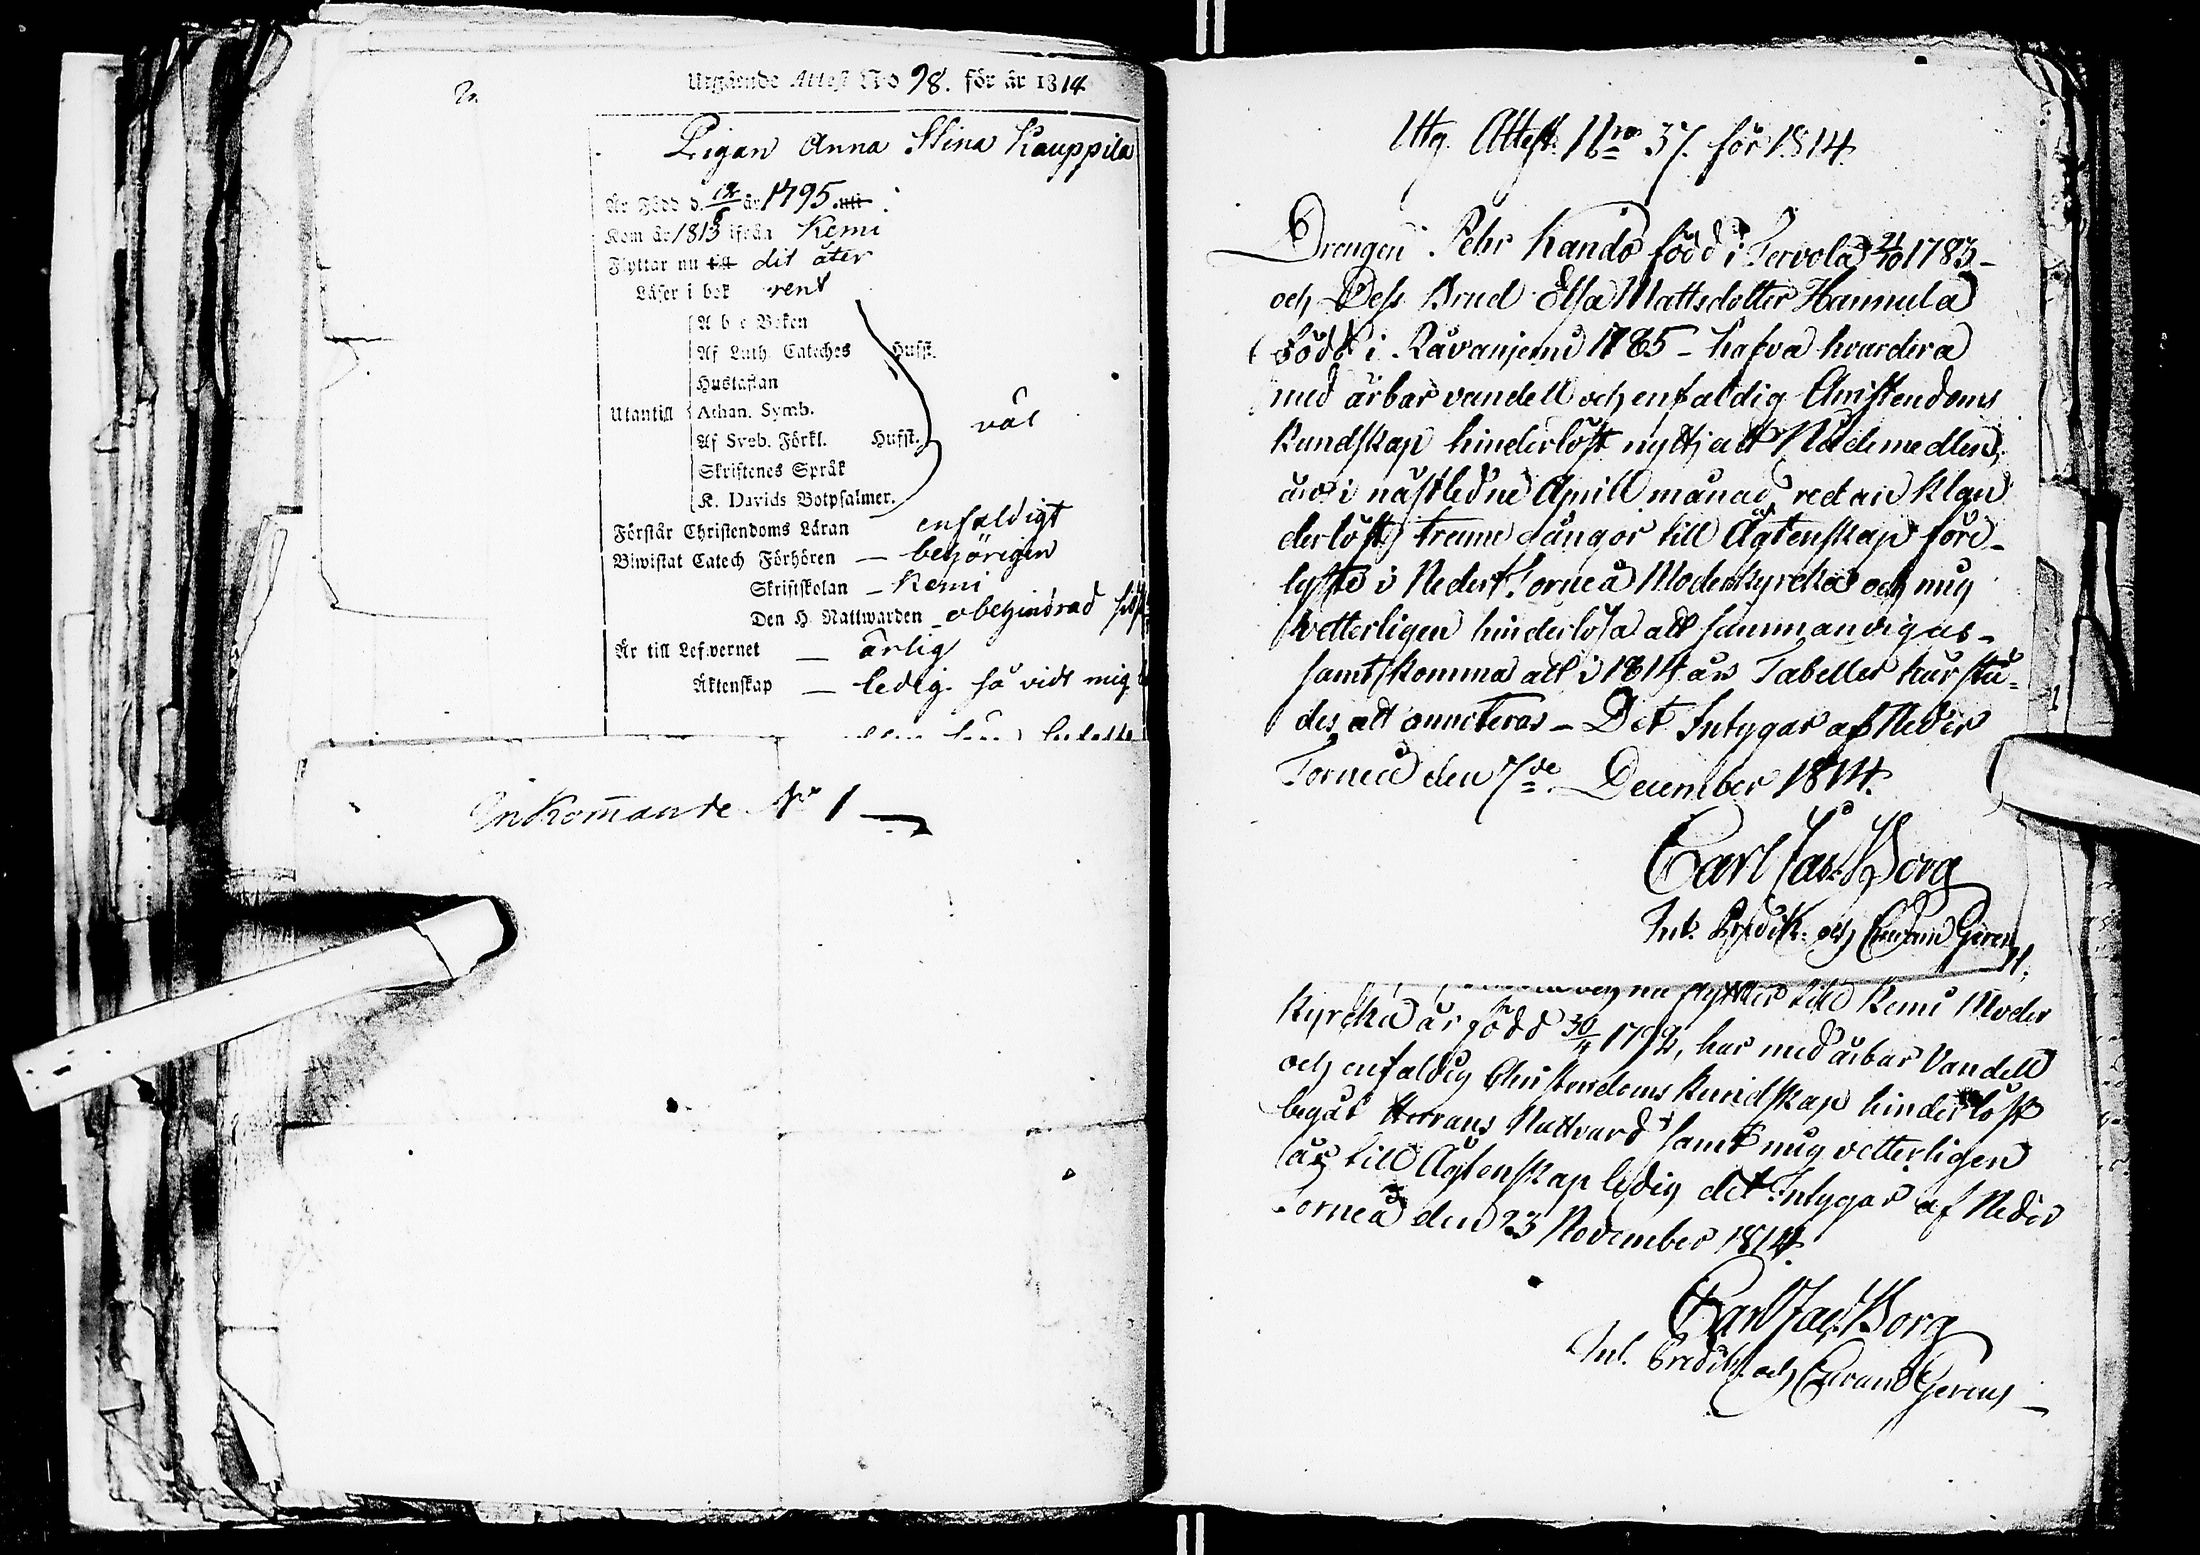 Utgående Attest No 98. för år 1814
Pigan Anna Stina Kauppila
Är Född d. år 1795. uti
Kom år 1813 ifrån Kemi
Flyttar nu till dit åter
Läser i bok rent
A b c Boken
Af Luth. Cateches Husst.
Hustaflan
Utantill Athan. Symb.
Af Sveb. Förkl. Husst.
väl
Skriftenes Språk
K. Davids Botpsalmer.
Förstår Christendoms Läran enfaldigt
Biwistat Catech Förhören — behörigen
Skriftskolan — Kemi
Den H. Nattwarden — obehindrad
Är till Lefvernet — ärlig
Äktenskap — ledig så vidt mig
Inkom̄ande No 1
Utg. Attest Nro 37. för 1814.
Drengen Pehr Kando född i Tervola 21/10 1783 –
och Dess Brud Elsa Mattsdotter Hannula
född i Råvanjemi 1785 – hafva hvardera
med ärbar vandell och enfaldig Christendoms
kundskap hinderlöst nyttjatt Nådemedlen,
äro i nästledne Aprill månad redan klan
derlöst trenne gångor till Ägtenskap före-
lyste i Neder Torneå Moderkyrcka och mig
vetterligen hinderlösa att sammanvigas –
samt komma att i 1814 års Tabeller härstä-
des att annoteras – Det Intygar af Neder
Torneå den 7de December 1814.
Carl Jac. Borg
Int. Predik. och Curam Gerens
nu flytter till Kemi Moder
Kyrcka är född 30/11 1792, har med ärbar Vandell
och enfaldig Christendoms kundskap hinderlöst
begåt Herrans Nattvard samt mig vetterligen
är till Ägtenskap ledig det Intygar af Neder
Torneå den 23 November 1814.
Carl Jac. Borg
Int. Predik. och Curam Gerens